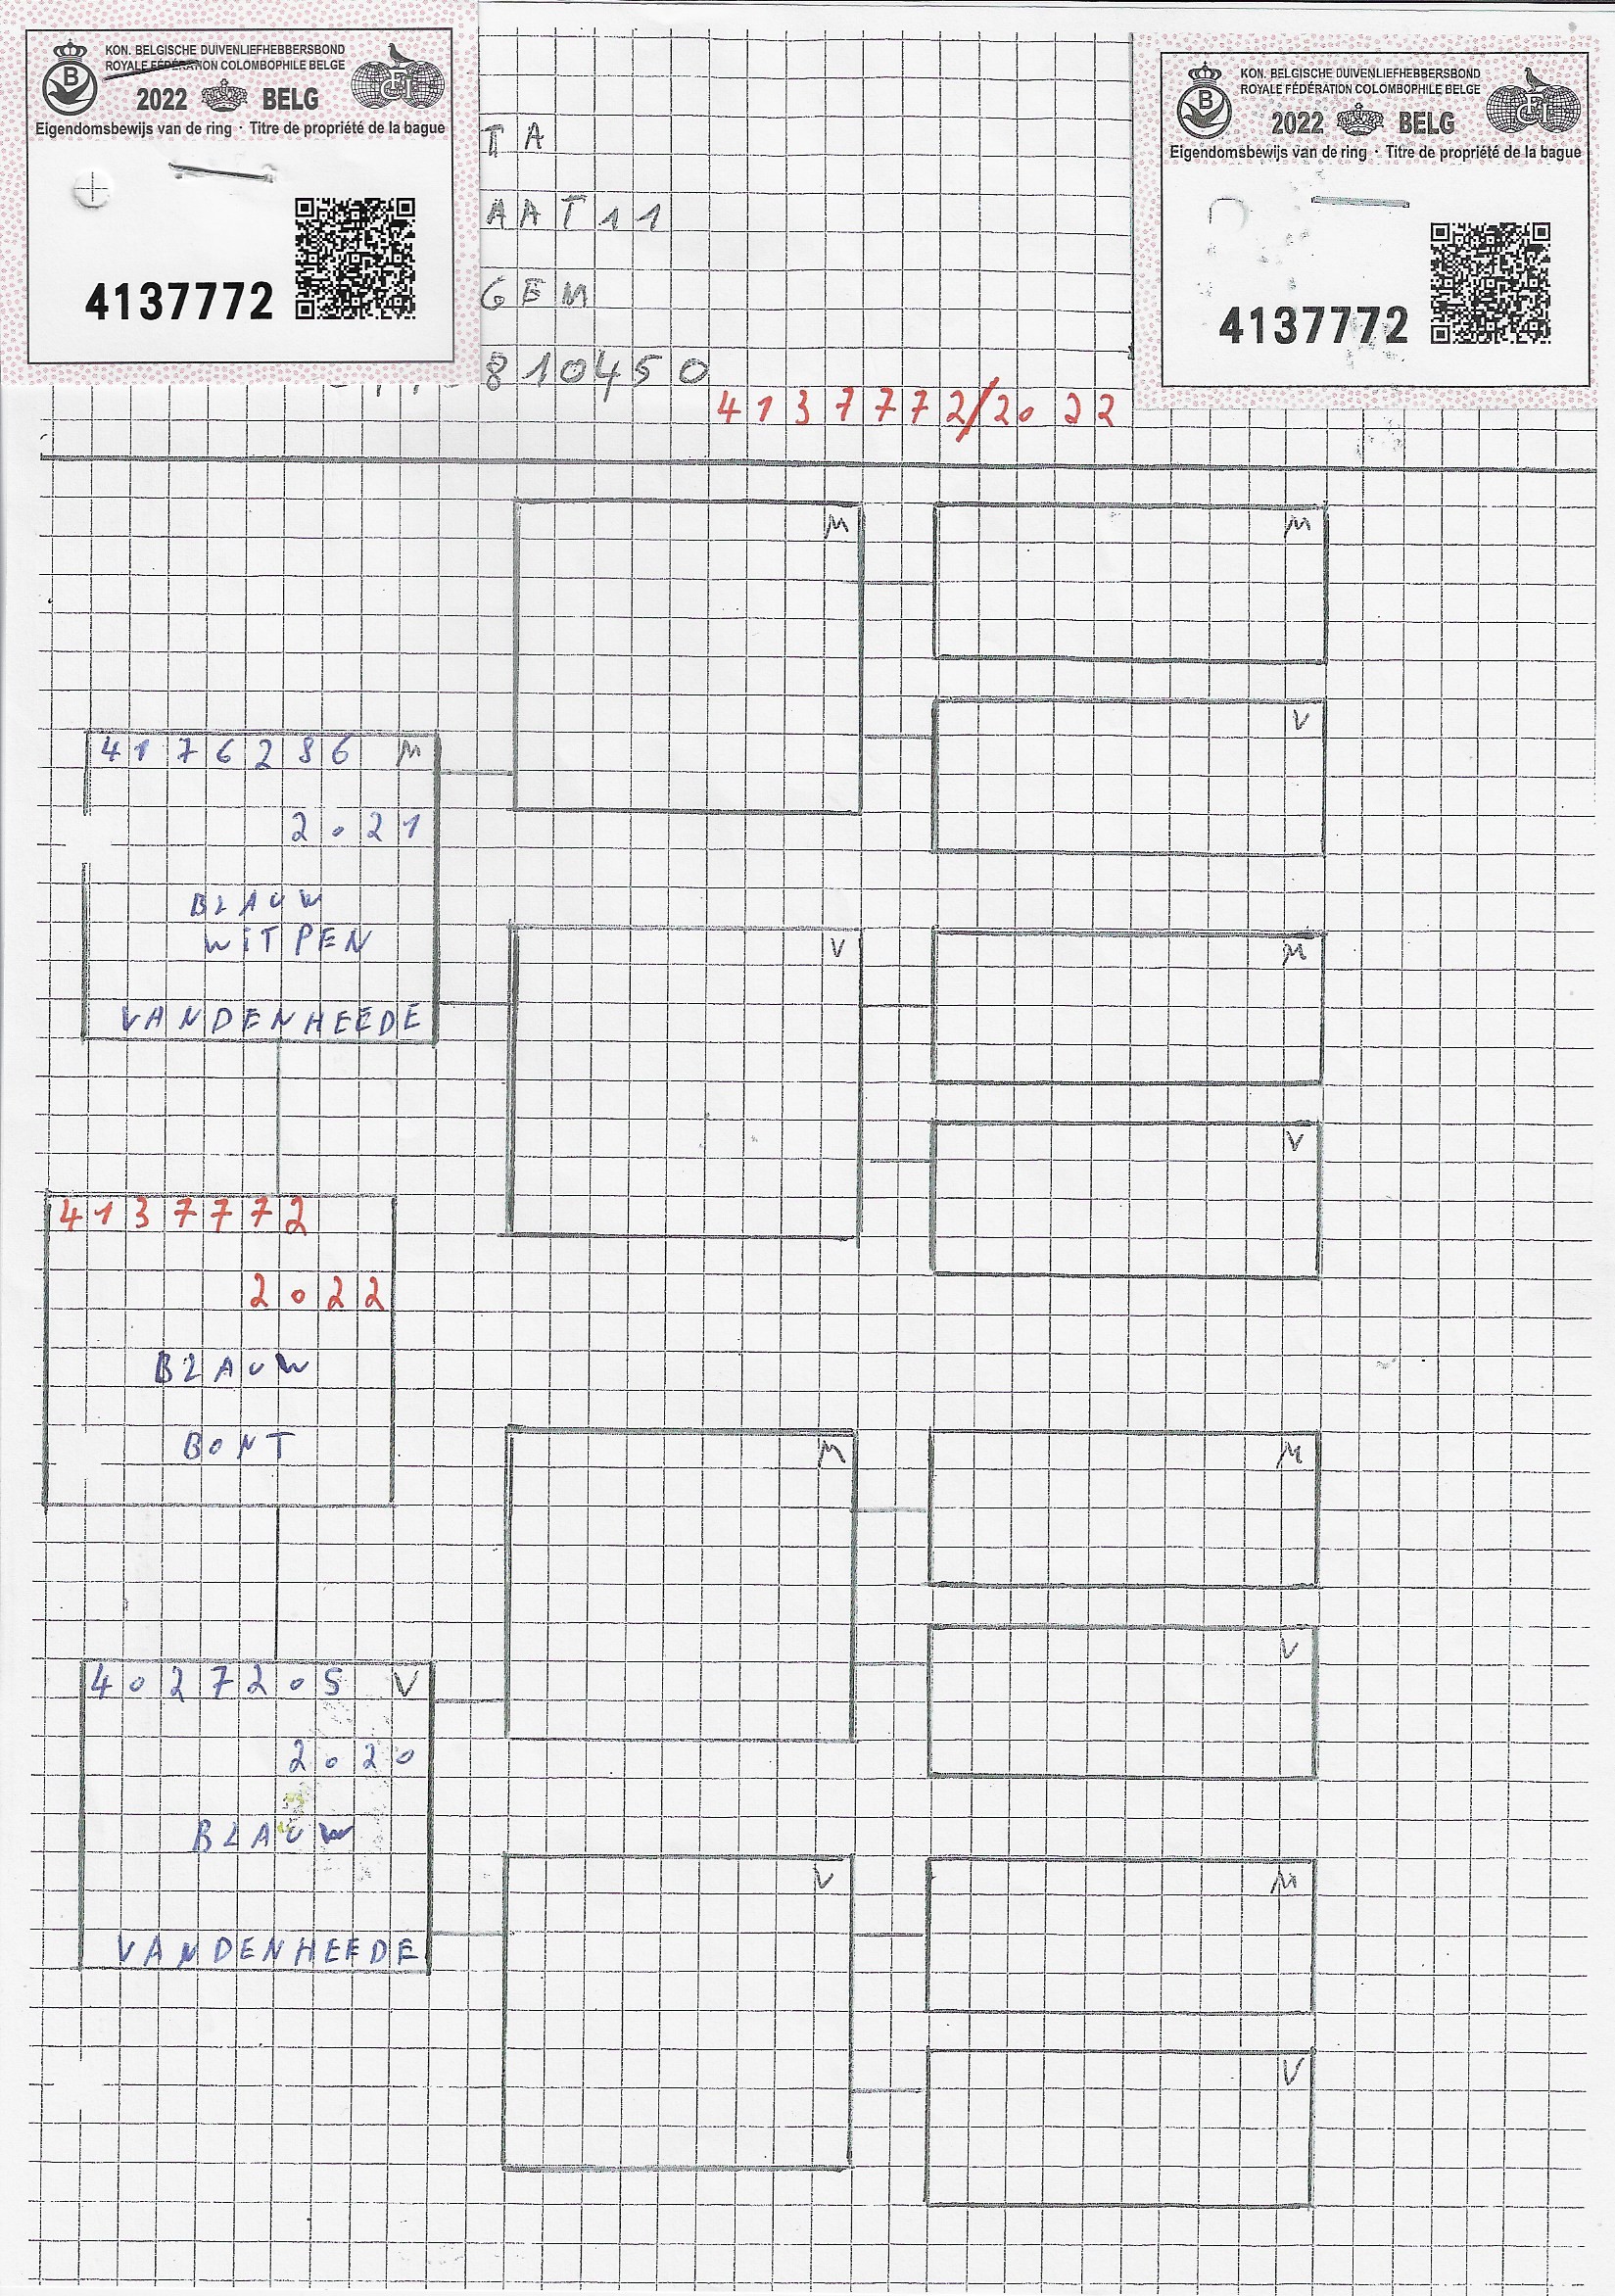 KON. BELGISCHE DUIVENLIEFHEBBERSBOND
ROYALE FÉDÉRATION COLOMBOPHILE BELGE
2022 B BELG FCI
Eigendomsbewijs van de ring · Titre de propriété de la bague
4137772
KON. BELGISCHE DUIVENLIEFHEBBERSBOND
ROYALE FÉDÉRATION COLOMBOPHILE BELGE
2022 B BELG FCI
Eigendomsbewijs van de ring · Titre de propriété de la bague
4137772
TA
AAT11
GEM
810450
4137772/2022
M
M
V
4176286 M
2021
BLAUW
WITPEN
VANDENHEEDE
V
M
V
4137772
2022
BLAUW
BONT
M
M
V
4027205 V
2020
BLAUW
VANDENHEEDE
V
M
V